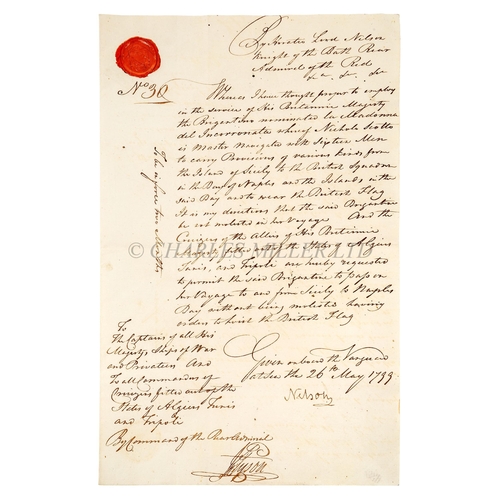 By Horatio Lord Nelson
Knight of the Bath Rear
Admiral of the Red
&c &c &c
No 36
Whereas I have thought proper to employ
in the service of His Britannic Majesty
the Brigantine nominated La Madonna
del whereof Nichola Scotto
is Master Navigated with Sixteen Men
to carry Provisions of various kinds from
the Island of Sicily to the British Squadron
in the Bay of Naples and the Islands in the
said Bay and to wear the British Flag
It is my directions that the said Brigantine
be not molested in her Voyage And the
Cruizers the Allies of His Britannic
Majesty fitted out of the States of Algiers
Tunis, and Tripole are hereby requested
to permit the said Brigantine to pass on
her Voyage to and from Sicily to Naples
Bay without being molested having
orders to hoist the British Flag
To be in force two Months
© CHARLES MILLER LTD
To
The Captains of all His
Majestys Ships of War
and Privateers And
To all Commanders of
Cruizers fitted out of the
States of Algiers Tunis
and Tripole
Given on board the Vanguard
at Sea the 26th May 1799
Nelson
By Command of the Rear Admiral